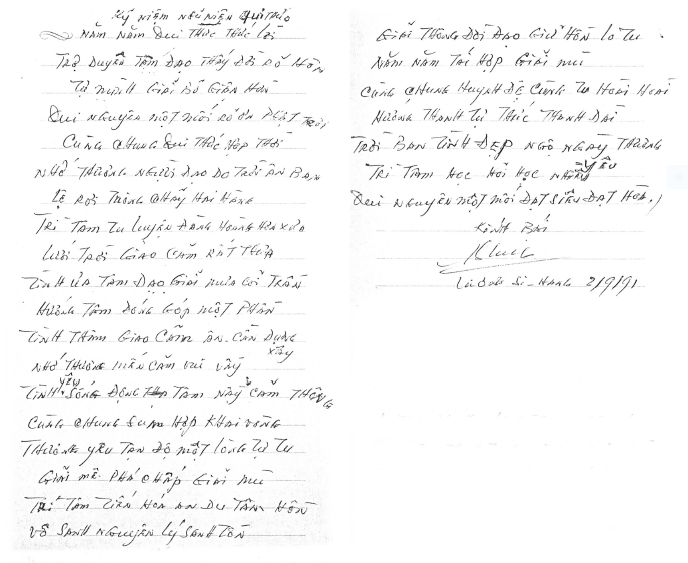 Kỷ niệm ngũ niên Qui Thức
Năm năm qui thức thức lời
Trợ duyên tâm đạo thấy đời rõ hơn
Tự mình giải bỏ giận hờn
Qui nguyên một mối rõ ơn Phật Trời
Cùng chung qui thức hợp thời
Nhớ thương người đạo do Trời ân ban
Lệ rơi tròng chảy hai hàng
Trí tâm tu luyện đàng hoàng hơn xưa
Lưới Trời giao cảm rất thừa
Tình ưa tâm đạo giải mưa cõi trần
Hướng tâm đóng góp một phần
Tình thâm giao cảm ân cần dựng xây
Nhớ thương mến cảm vui vầy
Tình yêu sống động tâm này cảm thông
Cùng chung sum họp khai vòng
Thương yêu tận độ một lòng tự tu
Giải mê phá chấp giải mù
Trí tâm tiến hóa an du tâm hồn
Vô sanh nguyên lý sanh tồn
Giải thông đời đạo giữ hồn lo tu
Năm năm tái hợp giải mù
Cùng chung huynh đệ cùng tu hoài hoài
Hướng thanh tự thức thanh đài
Trời ban tình đẹp ngộ ngay thương yêu
Trí tâm học hỏi học nhiều
Qui nguyên một mối đạt siêu đạt hòa.
Kính bái
2/9/91